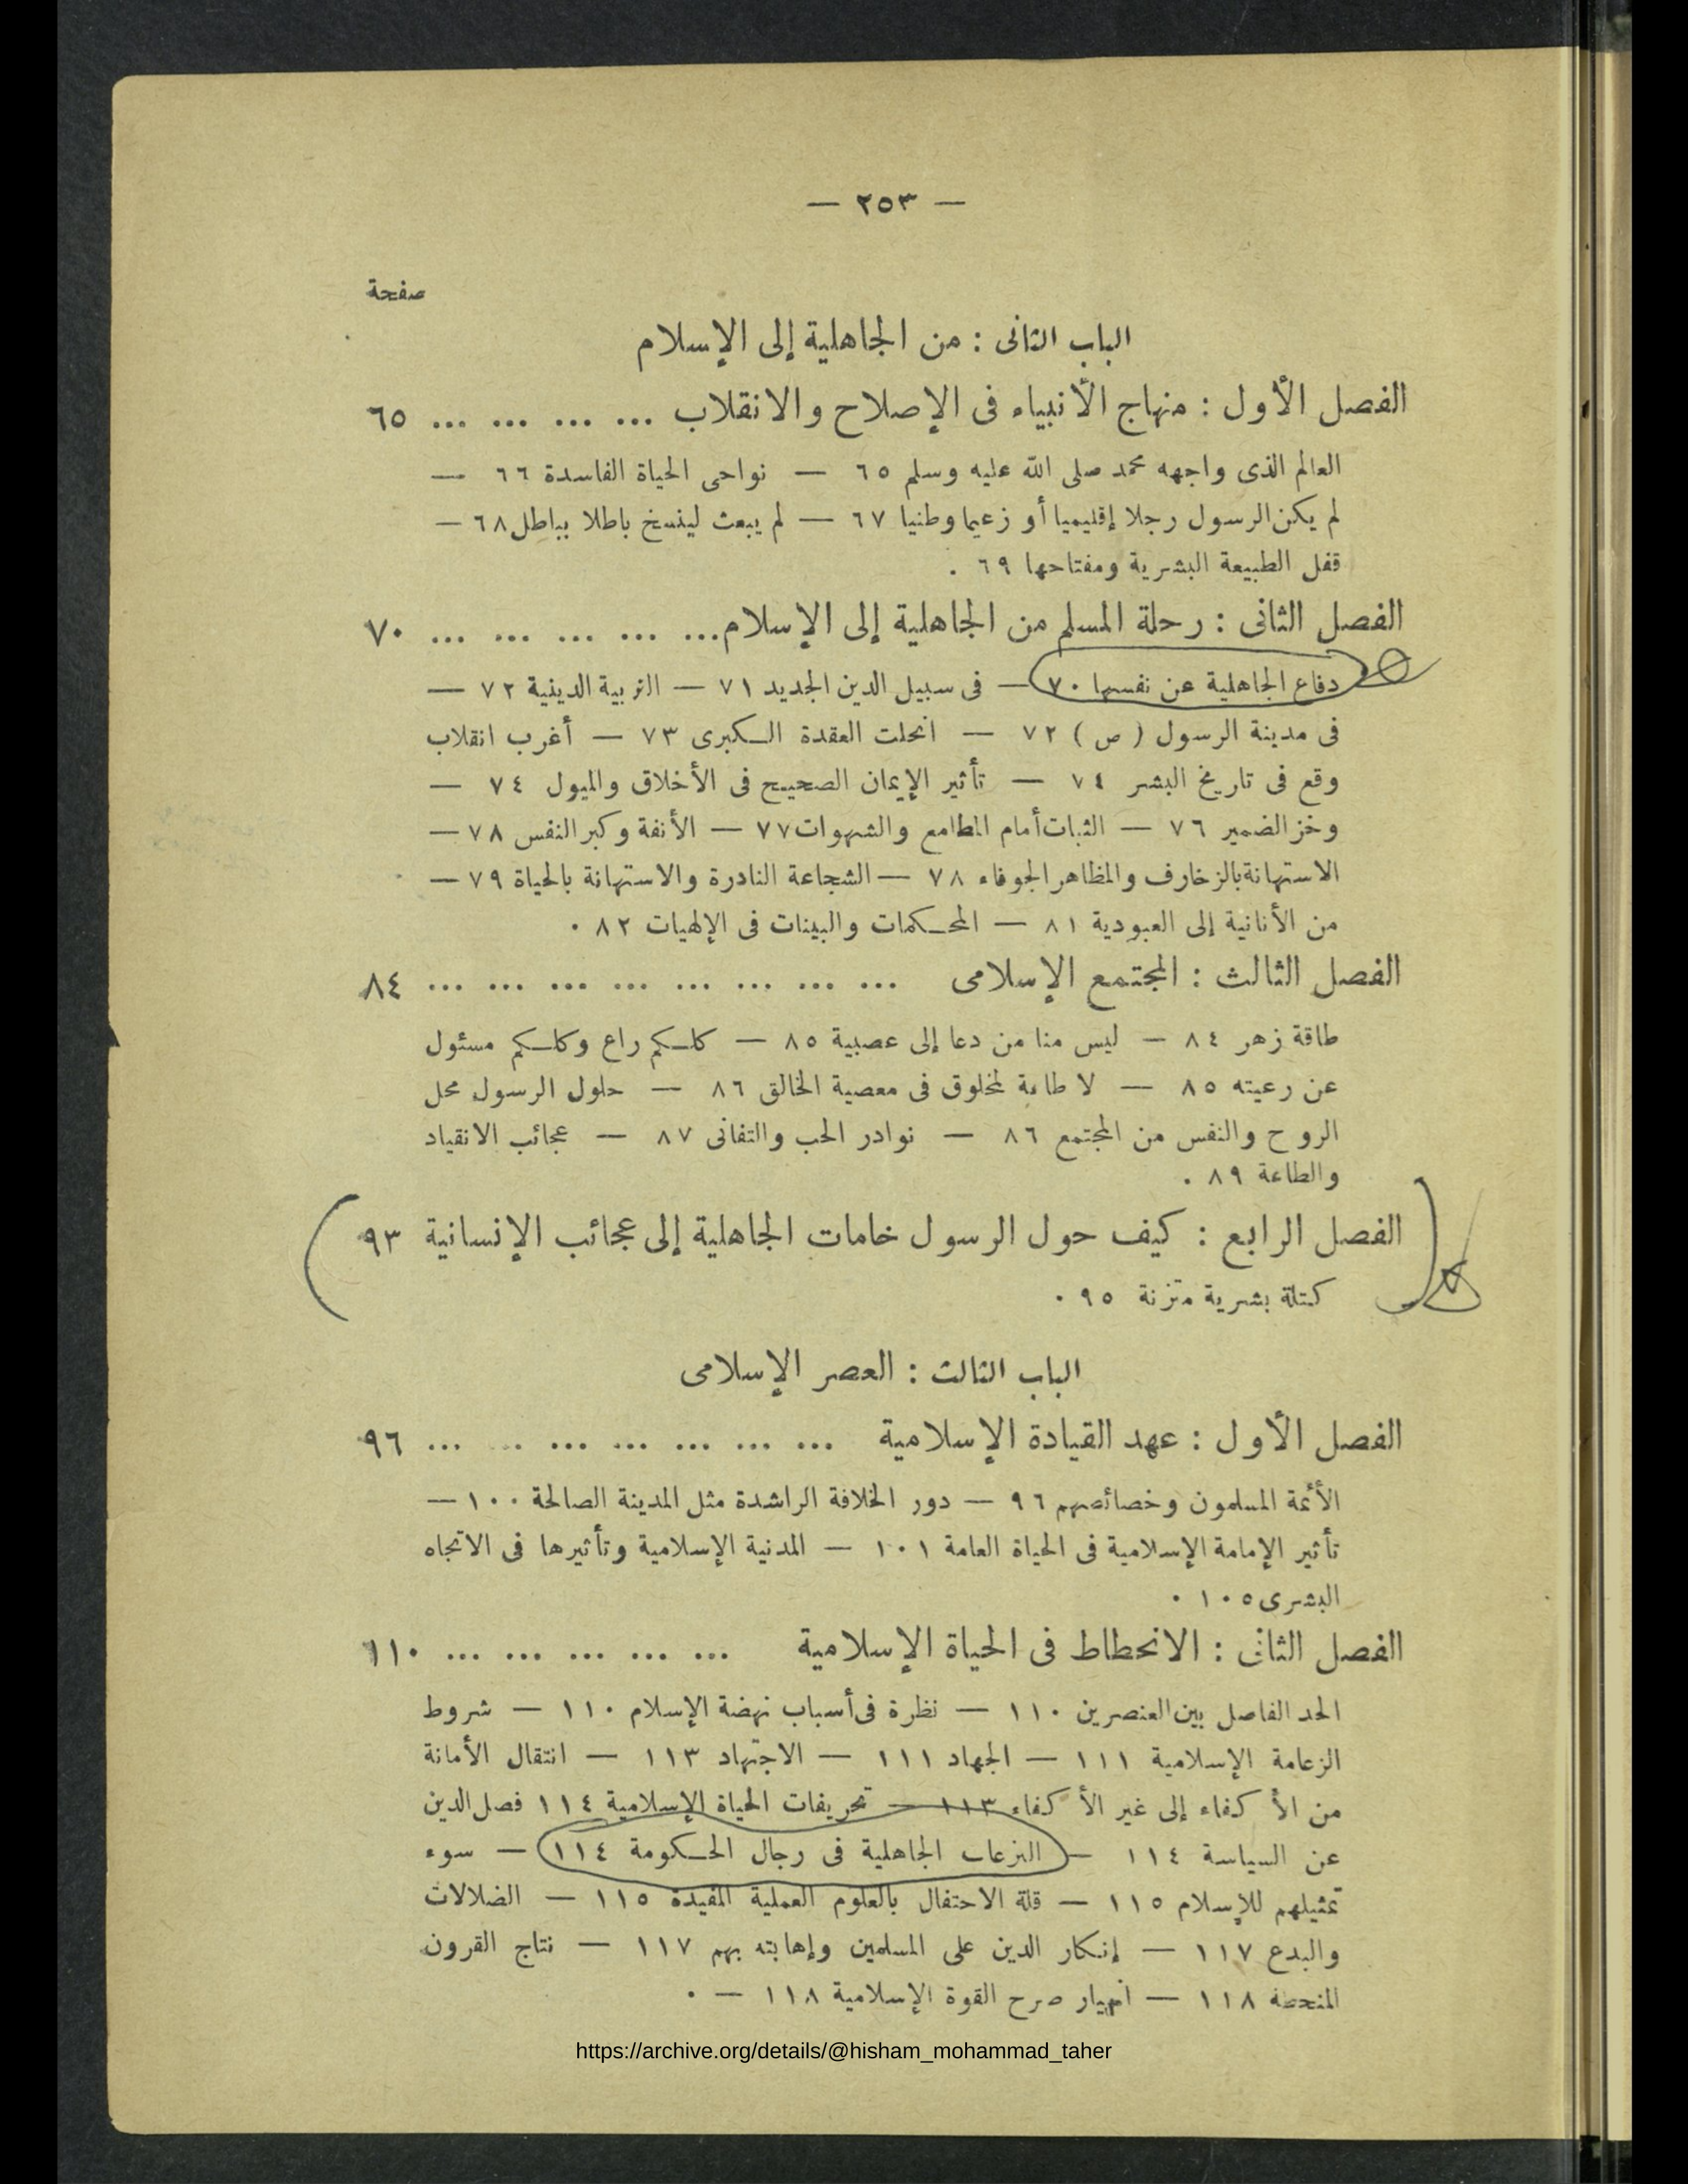 — ٢٥٣ —
صفحة
الباب الثانى : من الجاهلية إلى الإسلام
الفصل الأول : منهاج الأنبياء فى الإصلاح والانقلاب ... ... ... ... ٦٥
العالم الذى واجهه محمد صلى الله عليه وسلم ٦٥ — نواحى الحياة الفاسدة ٦٦ —
لم يكن الرسول رجلا إقليميا أو زعيما وطنيا ٦٧ — لم يبعث لينسخ باطلا بباطل ٦٨ —
قفل الطبيعة البشرية ومفتاحها ٦٩ .
الفصل الثانى : رحلة المسلم من الجاهلية إلى الإسلام ... ... ... ... ... ٧٠
دفاع الجاهلية عن نفسها ٧٠ — فى سبيل الدين الجديد ٧١ — التربية الدينية ٧٢ —
فى مدينة الرسول ( ص ) ٧٢ — انحلت العقدة الكبرى ٧٣ — أغرب انقلاب
وقع فى تاريخ البشر ٧٤ — تأثير الإيمان الصحيح فى الأخلاق والميول ٧٤ —
وخز الضمير ٧٦ — الثبات أمام المطامع والشهوات ٧٧ — الأنفة وكبر النفس ٧٨ —
الاستهانة بالزخارف والمظاهر الجوفاء ٧٨ — الشجاعة النادرة والاستهانة بالحياة ٧٩ —
من الأنانية إلى العبودية ٨١ — المحكمات والبينات فى الإلهيات ٨٢ .
الفصل الثالث : المجتمع الإسلامى ... ... ... ... ... ... ... ... ٨٤
طاقة زهر ٨٤ — ليس منا من دعا إلى عصبية ٨٥ — كلكم راع وكلكم مسئول
عن رعيته ٨٥ — لا طاعة لمخلوق فى معصية الخالق ٨٦ — حلول الرسول محل
الروح والنفس من المجتمع ٨٦ — نوادر الحب والتفانى ٨٧ — عجائب الانقياد
والطاعة ٨٩ .
الفصل الرابع : كيف حول الرسول خامات الجاهلية إلى عجائب الإنسانية ٩٣
كتلة بشرية متزنة ٩٥ .
الباب الثالث : العصر الإسلامى
الفصل الأول : عهد القيادة الإسلامية ... ... ... ... ... ... ... ٩٦
الأئمة المسلمون وخصائصهم ٩٦ — دور الخلافة الراشدة مثل المدينة الصالحة ١٠٠ —
تأثير الإمامة الإسلامية فى الحياة العامة ١٠١ — المدنية الإسلامية وتأثيرها فى الاتجاه
البشرى ١٠٥ .
الفصل الثانى : الانحطاط فى الحياة الإسلامية ... ... ... ... ... ١١٠
الحد الفاصل بين العنصرين ١١٠ — نظرة فى أسباب نهضة الإسلام ١١٠ — شروط
الزعامة الإسلامية ١١١ — الجهاد ١١١ — الاجتهاد ١١٣ — انتقال الأمانة
من الأكفاء إلى غير الأكفاء ١١٣ — تحريفات الحياة الإسلامية ١١٤ فصل الدين
عن السياسة ١١٤ — النزعات الجاهلية فى رجال الحكومة ١١٤ — سوء
تمثيلهم للإسلام ١١٥ — قلة الاحتفال بالعلوم العملية المفيدة ١١٥ — الضلالات
والبدع ١١٧ — إنكار الدين على المسلمين وإهابته بهم ١١٧ — نتاج القرون
المنحطة ١١٨ — انهيار صرح القوة الإسلامية ١١٨ — .
https://archive.org/details/@hisham_mohammad_taher